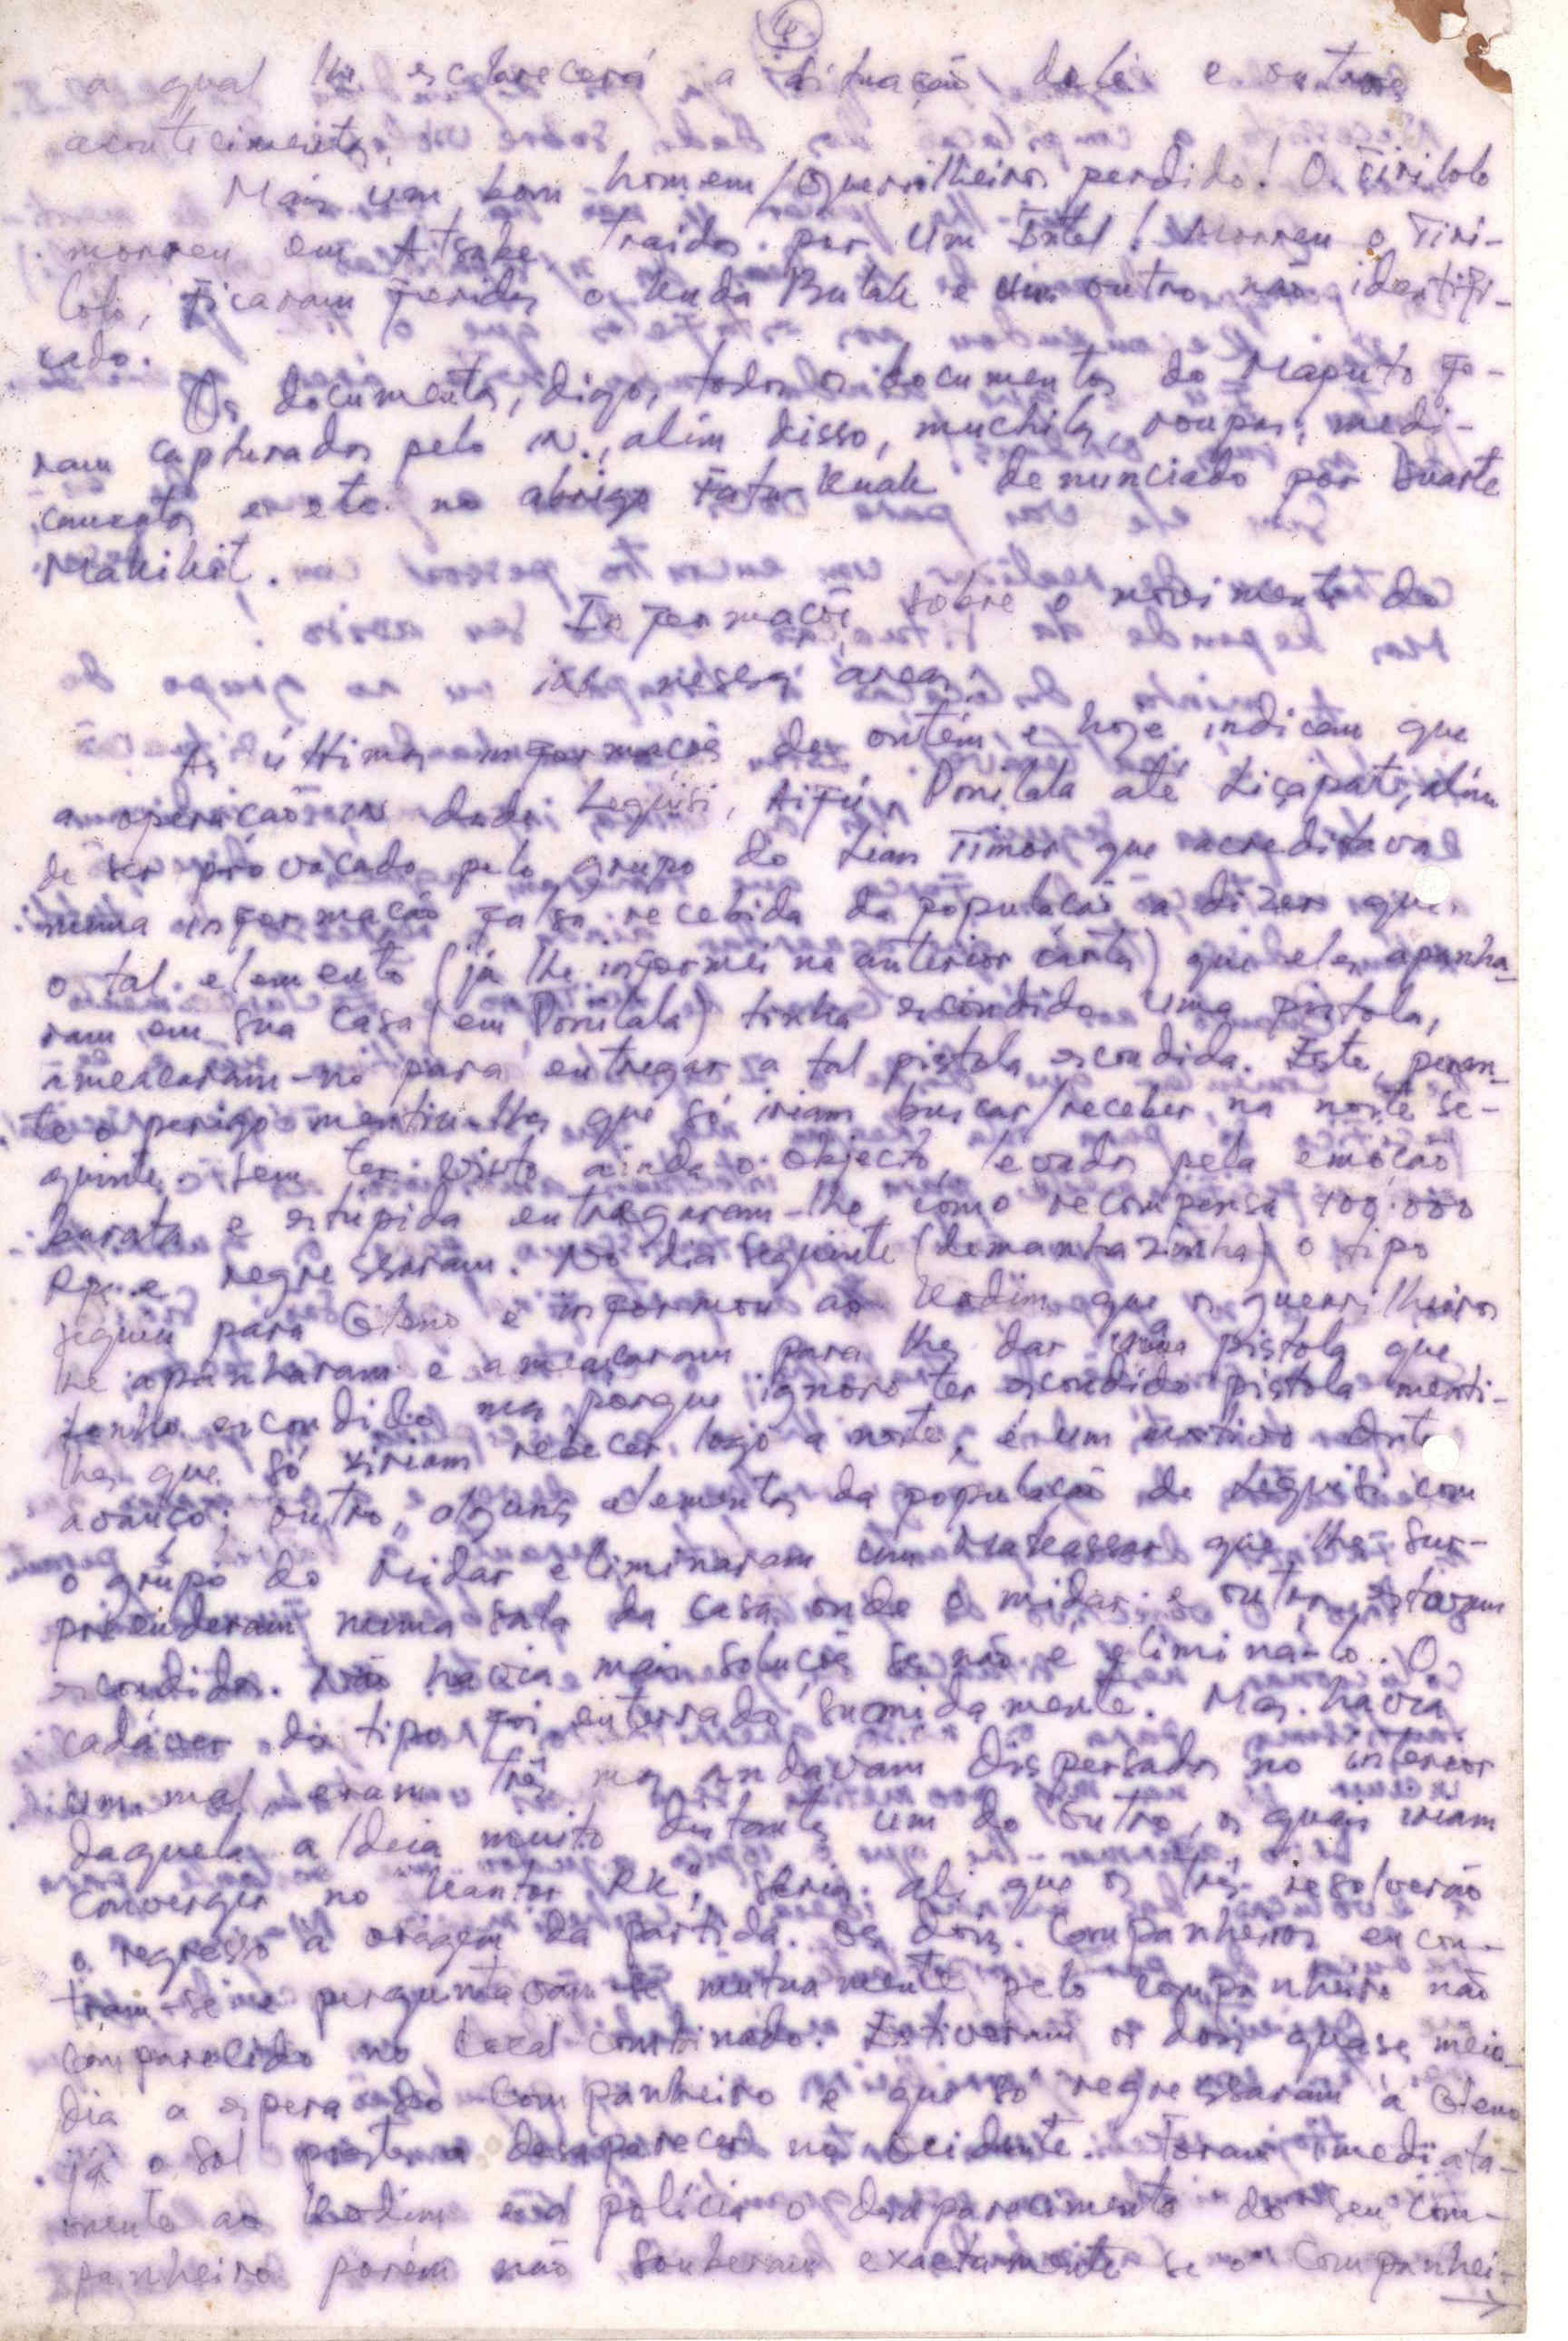 a qual lhe esclarecerá a situação dele e outros
acontecimentos.
Mais um bom homem/Guerrilheiro perdido! O Tirilolo
morreu em Atsabe traido por um Intel! Morreu o Tiri-
lolo, ficaram feridos o Kuda Bulak e um outro não identifi-
cado.
Os documentos, digo, todos os documentos do Maputo fo-
ram capturados pelo N., além disso, muchilas, roupas, medi-
camentos etc. no abrigo Fatu-Kuak denunciado por Duarte
Makikit.
Informações sobre o movimento do
nessa área:
As últimas informações de ontém e hoje indicam que
a operação N desde Leguisi, Aifú, Ponilala até Liçapat, além
de ser provocado pelo grupo do Lean Timor que acreditava
numa informação falsa recebida da população a dizer que
o tal elemento (já lhe informei na anterior carta) que eles apanha-
ram em sua casa (em Ponilala) tinha escondido uma pistola,
ameaçaram-no para entregar a tal pistola escondida. Este, peran-
te o perigo mentiu-lhes que só iriam buscar/receber na noite se-
guinte. Sem ter visto ainda o objecto, levados pela emoção
barata e estúpida entregaram-lhe como recompensa 100.000
Rp. e regressaram. No dia seguinte (demanhazinha) o tipo
seguiu para Gleno e informou ao Kodim que os guerrilheiros
lhe apanharam e ameaçaram para lhes dar uma pistola que
tenho escondido mas porque ignoro ter escondido pistola menti-
lhes que só viriam receber logo à noite, é um motivo deste
avanço; outro, alguns elementos da população de Leguisi com
o grupo do Midar eliminaram um Makassar que lhes sur-
preenderam numa sala da casa onde o Midar e outros estavam
escondidos. Não havia mais soluções se não é eliminá-lo. O
cadáver do tipo foi enterrado sumidamente. Mas havia
um mal, eram três mas andavam dispersados no interior
daquela aldeia muito distantes um do outro, os quais iriam
convergir no "Kantor RK", seria ali que os três resolverão
o regresso à origem da partida. Os dois companheiros encon-
tram-se e perguntavam-se mutuamente pelo companheiro não
comparecido no local combinado. Estiveram os dois quase meio-
dia a espera do companheiro e que só regressaram à Gleno
já o sol prestes a desaparecer no ocidente. Foram imediata-
mente ao Kodim e à polícia o desaparecimento do seu com-
panheiro porém não souberam exactamente se o companhei-